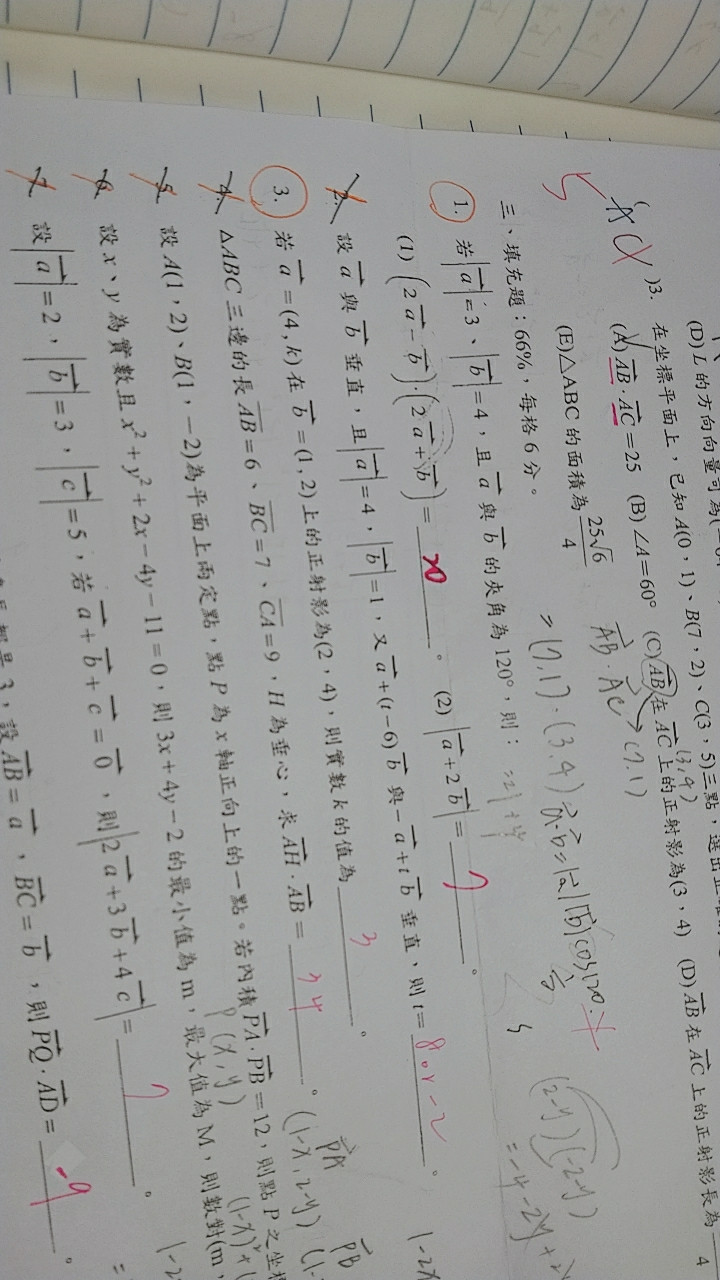 (D) L 的方向向量可為
)3. 在坐標平面上，已知 A(0，1)、B(7，2)、C(3，5)三點，
(A) AB⃗·AC⃗=25 (B) ∠A=60° (C) AB⃗ 在 AC⃗ 上的正射影為(3，4) (D) AB⃗ 在 AC⃗ 上的正射影長為
(E)△ABC 的面積為 25√6/4
AB⃗·AC⃗
(3,4)
(7,1)
=(7,1)·(3,4)
三、填充題：66%，每格 6 分。
1. 若|a⃗|=3、|b⃗|=4，且 a⃗ 與 b⃗ 的夾角為 120°，則：
(1) (2a⃗−b⃗)·(2a⃗+b⃗)= 20 。 (2) |a⃗+2b⃗|= 7 。
2. 設 a⃗ 與 b⃗ 垂直，且|a⃗|=4，|b⃗|=1，又 a⃗+(t−6)b⃗ 與−a⃗+t b⃗ 垂直，則 t= 8 or -2 。
3. 若 a⃗=(4, k)在 b⃗=(1, 2)上的正射影為(2，4)，則實數 k 的值為 3 。
4. △ABC 三邊的長 AB=6、BC=7、CA=9，H 為垂心，求 AH⃗·AB⃗= 34 。
5. 設 A(1，2)、B(1，−2)為平面上兩定點，點 P 為 x 軸正向上的一點。若內積 PA⃗·PB⃗=12，則點 P 之坐標
P(x,y)
PA⃗
(1-x, 2-y)
PB⃗
(2-y)(-2-y)
6. 設 x、y 為實數且 x²+y²+2x−4y−11=0，則 3x+4y−2 的最小值為 m，最大值為 M，則數對(m，
7. 設|a⃗|=2，|b⃗|=3，|c⃗|=5，若 a⃗+b⃗+c⃗=0⃗，則|2a⃗+3b⃗+4c⃗|= 7 。
3，設 AB⃗=a⃗，BC⃗=b⃗，則 PQ⃗·AD⃗= -9 。